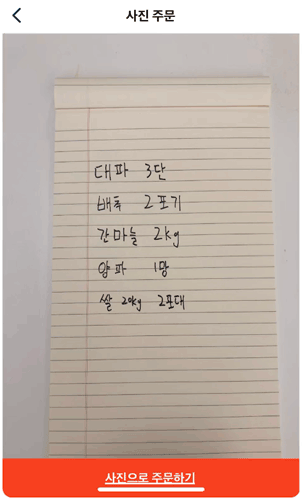 사진 주문
대파 3단
배추 2포기
간마늘 2kg
양파 1망
쌀 20kg 2포대
사진으로 주문하기